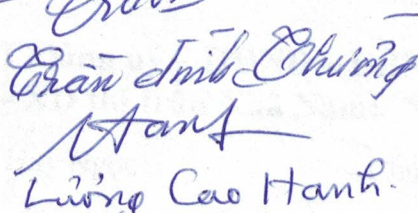 Trần đình Chưởng
Hanh
Lương Cao Hanh.